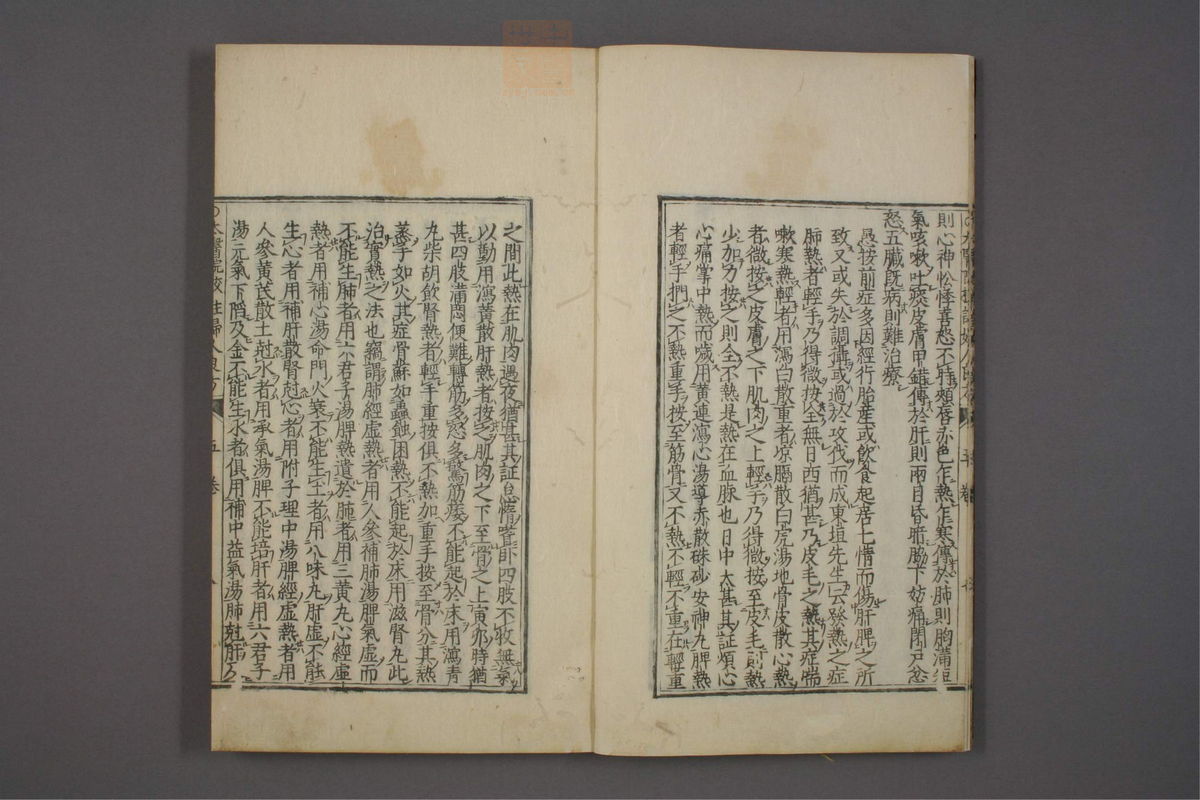 則心神忪悸喜怒不時頰唇赤色乍熱乍寒傳於肺則胸滿短
氣咳嗽吐痰皮膚甲錯傳於肝則兩目昏暗脇下妨痛閉戶忿
怒五臟既病則難治療
愚按前症多因經行胎產或飲食起居七情而傷肝脾之所
致又或失於調攝或過於攻伐而成東垣先生云發熱之症
肺熱者輕手乃得微按全無日西猶甚乃皮毛之熱其症喘
嗽寒熱輕者用瀉白散重者凉膈散白虎湯地骨皮散心熱
者微按之皮膚之下肌肉之上輕手乃得微按至皮毛則熱
少加力按之則全不熱是熱在血脉也日中太甚其証煩心
心痛掌中熱而噦用黃連瀉心湯導赤散硃砂安神丸脾熱
者輕手捫之不熱重手按至筋骨又不熱不輕不重在輕重
之間此熱在肌肉遇夜猶甚其証怠惰嗜卧四肢不收無氣
以動用瀉黃散肝熱者按之肌肉之下至骨之上寅卯時猶
甚四肢滿悶便難轉筋多怒多驚筋痿不能起於床用瀉青
丸柴胡飲腎熱者輕手重按俱不熱加重手按至骨分其熱
蒸手如火其症骨蘇如蟲蝕困熱不能起於床用滋腎丸此
治實熱之法也竊謂肺經虛熱者用人參補肺湯脾氣虛而
不能生肺者用六君子湯脾熱遺於肺者用三黃丸心經虛
熱者用補心湯命門火衰不能生土者用八味丸肝虛不能
生心者用補肝散腎尅心者用附子理中湯脾經虛熱者用
人參黃芪散土尅水者用承氣湯脾不能培肝者用六君子
湯元氣下陷及金不能生水者俱用補中益氣湯肺尅肝
太醫院校註婦人良方
五卷